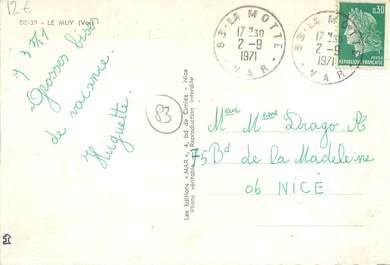 12€
DE-39 - LE MUY (Var)
"Grosses bises
de vacance.
Huguette.
83
Les Editions "MAR", 4, bd de Cimiez - Nice
Photo véritable - Reproduction interdite
83-LA MOTTE
17 H30
2-9
1971
VAR
83-LA MOTTE
17 H30
2-9
1971
VAR
0,30
REPUBLIQUE FRANÇAISE
Drago A
75 Bd de la Madeleine
06 NICE